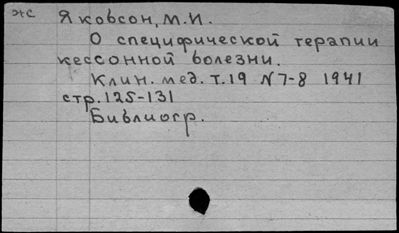 жс Якобсон, М.И.
О специфической терапии
кессонной болезни.
Клин. мед. т.19 N7-8 1941
стр.125-131
Библиогр.